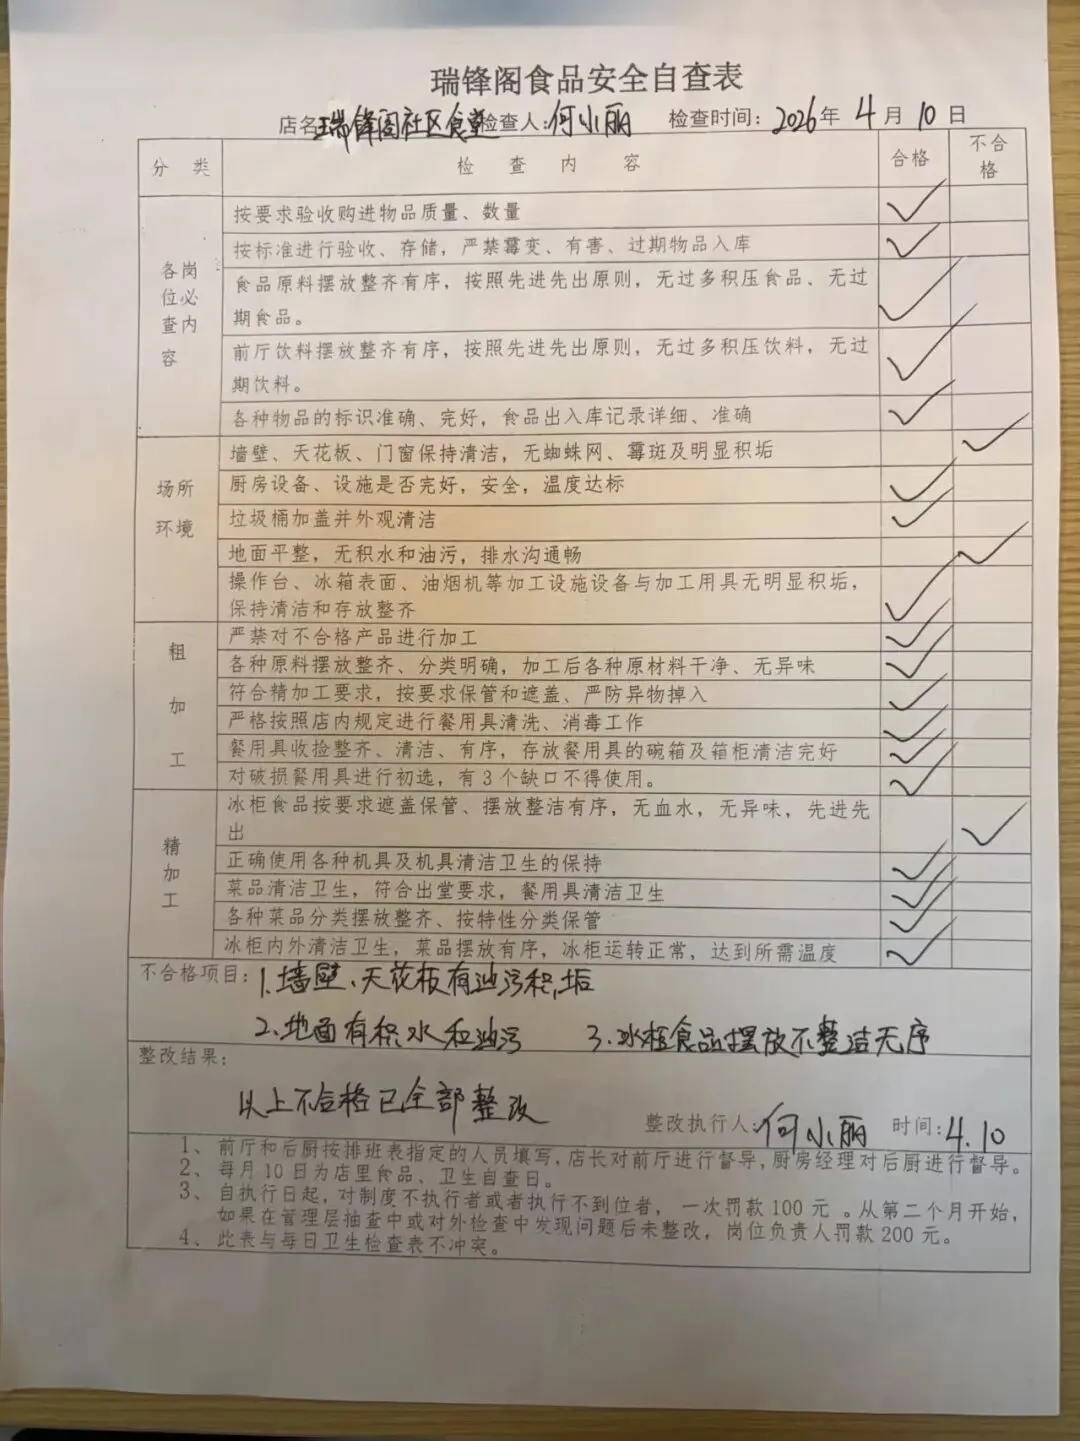 瑞锋阁食品安全自查表
店名:瑞锋阁社区食堂 检查人:何小丽 检查时间:2026年 4月 10日
分 类 检 查 内 容 合格 不合格
各岗位必查内容
按要求验收购进物品质量、数量 ✓
按标准进行验收、存储,严禁霉变、有害、过期物品入库 ✓
食品原料摆放整齐有序,按照先进先出原则,无过多积压食品、无过
期食品。 ✓
前厅饮料摆放整齐有序,按照先进先出原则,无过多积压饮料,无过
期饮料。 ✓
各种物品的标识准确、完好,食品出入库记录详细、准确 ✓
场所环境
墙壁、天花板、门窗保持清洁,无蜘蛛网、霉斑及明显积垢 ✓
厨房设备、设施是否完好,安全,温度达标 ✓
垃圾桶加盖并外观清洁 ✓
地面平整,无积水和油污,排水沟通畅 ✓
操作台、冰箱表面、油烟机等加工设施设备与加工用具无明显积垢,
保持清洁和存放整齐 ✓
粗加工
严禁对不合格产品进行加工 ✓
各种原料摆放整齐、分类明确,加工后各种原材料干净、无异味 ✓
符合精加工要求,按要求保管和遮盖、严防异物掉入 ✓
严格按照店内规定进行餐用具清洗、消毒工作 ✓
餐用具收捡整齐、清洁、有序,存放餐用具的碗箱及箱柜清洁完好 ✓
对破损餐用具进行初选,有3个缺口不得使用。 ✓
精加工
冰柜食品按要求遮盖保管、摆放整洁有序,无血水,无异味,先进先
出 ✓
正确使用各种机具及机具清洁卫生的保持 ✓
菜品清洁卫生,符合出堂要求,餐用具清洁卫生 ✓
各种菜品分类摆放整齐、按特性分类保管 ✓
冰柜内外清洁卫生,菜品摆放有序,冰柜运转正常,达到所需温度 ✓
不合格项目: 1.墙壁、天花板有油污积垢
2.地面有积水和油污 3.冰柜食品摆放不整洁无序
整改结果:
以上不合格已全部整改
整改执行人:何小丽 时间:4.10
1、前厅和后厨按排班表指定的人员填写,店长对前厅进行督导,厨房经理对后厨进行督导。
2、每月10日为店里食品、卫生自查日。
3、自执行日起,对制度不执行者或者执行不到位者,一次罚款100元 。从第二个月开始,
如果在管理层抽查中或对外检查中发现问题后未整改,岗位负责人罚款200元。
4、此表与每日卫生检查表不冲突。